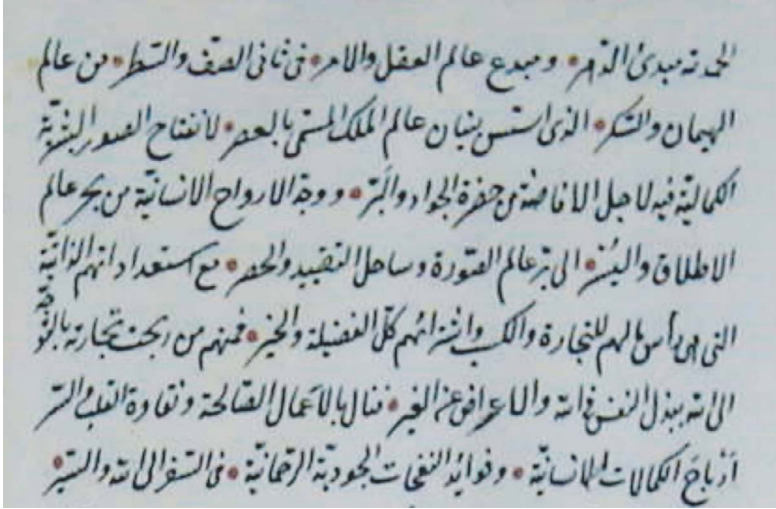 الحمد لله مبدئ الدهر • ومبدع عالم العقل والامر • فى ثانى الصف والسطر • من عالم
الهيمان والسكر • الذى اسس بنيان عالم الملك المسمى بالعصر • لانفتاح الصور البشرية
الكمالية فيه لاجل الافاضة من حضرة الجواد والبر • ووجه الارواح الانسانية من بحر عالم
الاطلاق واليسر • الى بر عالم الصورة وساحل التقييد والحصر • مع استعداداتهم الذاتية
التى هى رأس مالهم للتجارة والكسب واشترائهم كل الفضيلة والخير • فمنهم من ربحت تجارته بالتوجه
الى الله ببذل النفس فى الله والاعراض عن الغير • فنال بالاعمال الصالحة ونقاوة القلب والسر
ارباح الكمالات الانسانية • وفوائد النفحات الجودية الرحمانية • فى السفر الى الله والسير •